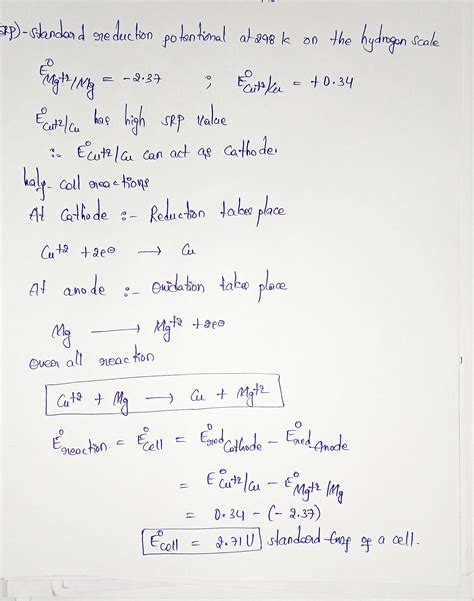 RP)-standard reduction potentional at 298 k on the hydrogen scale
E⁰Mg+2/Mg = -2.37 ; E⁰Cu+2/Cu = +0.34
E⁰Cu+2/Cu has high SRP value
∴ E⁰Cu+2/Cu can act as cathode.
half-cell reactions
At Cathode :- Reduction takes place
Cu+2 + 2e⊖ → Cu
At anode :- Oxidation takes place
Mg → Mg+2 + 2e⊖
Over all reaction
Cu+2 + Mg → Cu + Mg+2
E⁰reaction = E⁰cell = E⁰red Cathode - E⁰red Anode
= E⁰Cu+2/Cu - E⁰Mg+2/Mg
= 0.34 - (-2.37)
E⁰cell = 2.71V standard Emf of a cell.